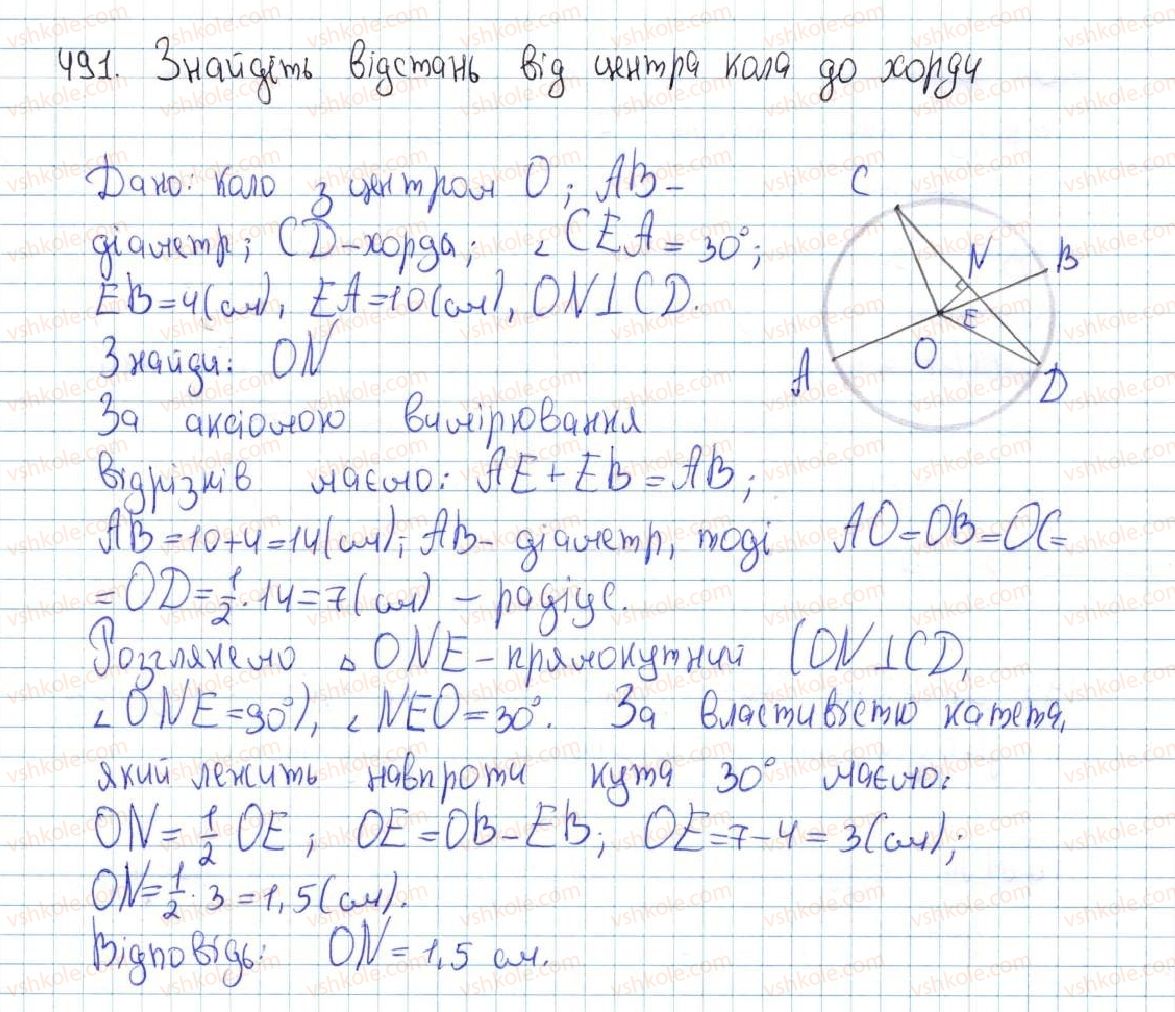 491. Знайдіть відстань від центра кола до хорди
Дано: коло з центром O; AB –
діаметр; CD – хорда; ∠CEA = 30°;
EB = 4(см), EA = 10(см), ON ⊥ CD.
Знайди: ON
За аксіомою вимірювання
відрізків маємо: AE + EB = AB;
AB = 10 + 4 = 14(см); AB – діаметр, тоді AO = OB = OC =
= OD = 1/2 · 14 = 7(см) – радіус.
Розглянемо △ONE – прямокутний (ON ⊥ CD,
∠ONE = 90°), ∠NEO = 30°. За властивістю катета,
який лежить навпроти кута 30° маємо:
ON = 1/2 OE; OE = OB – EB; OE = 7 – 4 = 3(см);
ON = 1/2 · 3 = 1,5(см).
Відповідь: ON = 1,5 см.
C
N
B
E
O
A
D
vshkole.com